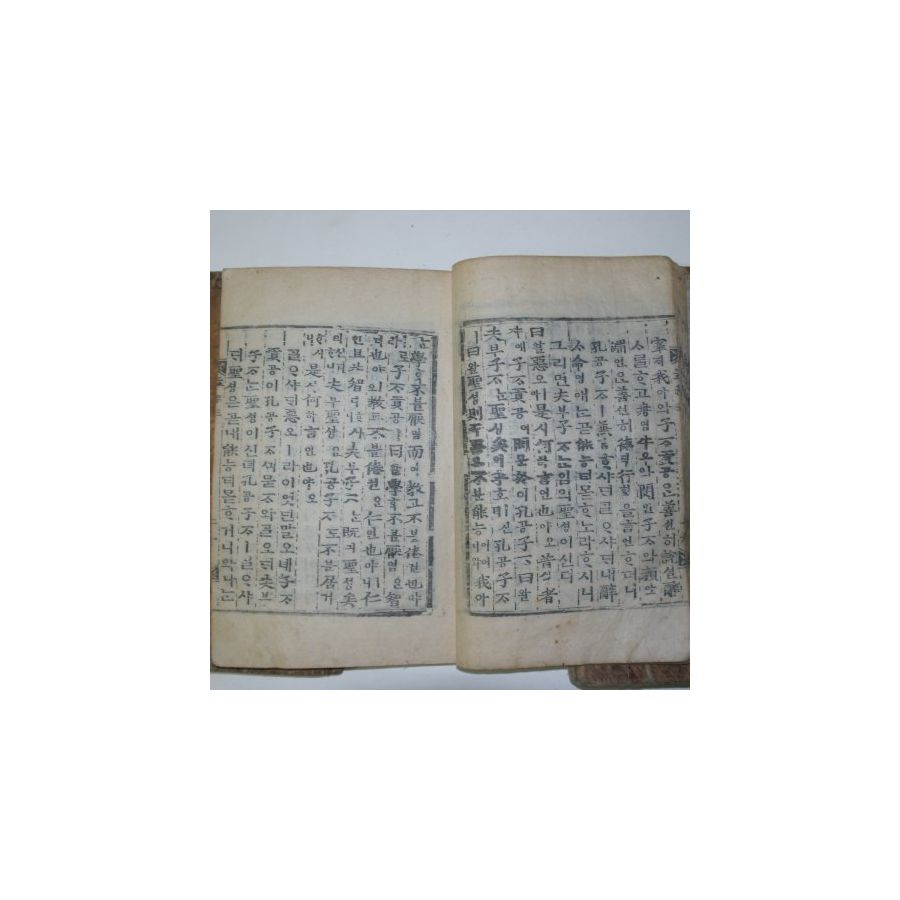 宰재我아와子ᄌᆞ貢공은善션히說셜辭
ᄉᆞ를ᄒᆞ고冉염牛우와閔민子ᄌᆞ와顔안
淵연은善션히德덕行ᄒᆡᆼ을言언ᄒᆞ더니
孔공子ᄌᆞㅣ兼겸ᄒᆞ샤ᄃᆡᄀᆞᆯᄋᆞ샤ᄃᆡ내辭
ᄉᆞ命명애ᄂᆞᆫ곧能능티몯ᄒᆞ노라ᄒᆞ시니
그러면夫부子ᄌᆞᄂᆞᆫ임의聖셩이신뎌
曰왈惡오ㅣ라是시何하言언也야오昔셕者
쟈애子ᄌᆞ貢공이問문於어孔공子ᄌᆞ曰왈
夫부子ᄌᆞᄂᆞᆫ聖셩矣의乎호ㅣ신뎌孔공子ᄌᆞ
ㅣ曰왈聖셩則즉吾오不블能능이어니와我아
ᄂᆞᆫ學ᄒᆞᆨ不블厭염而이敎교不블倦권也야
로라子ᄌᆞ貢공이曰왈學ᄒᆞᆨ不블厭염은智
디也야ㅣ오敎교不블倦권은仁인也야ㅣ니仁
인且챠智디ᄒᆞ시니夫부子ᄌᆞᄂᆞᆫ旣긔聖셩矣
의신뎌ᄒᆞ니夫부聖셩은孔공子ᄌᆞ도不블居거
ᄒᆞ시니是시何하言언也야오
ᄀᆞᆯᄋᆞ샤ᄃᆡ惡오ㅣ라이엇딘말오녜子ᄌᆞ
貢공이孔공子ᄌᆞᄭᅴ묻ᄌᆞ와ᄀᆞᆯ오ᄃᆡ夫부
子ᄌᆞᄂᆞᆫ聖셩이신뎌孔공子ᄌᆞㅣᄀᆞᆯᄋᆞ샤
ᄃᆡ聖셩은곧내能능티몯ᄒᆞ거니와나ᄂᆞᆫ